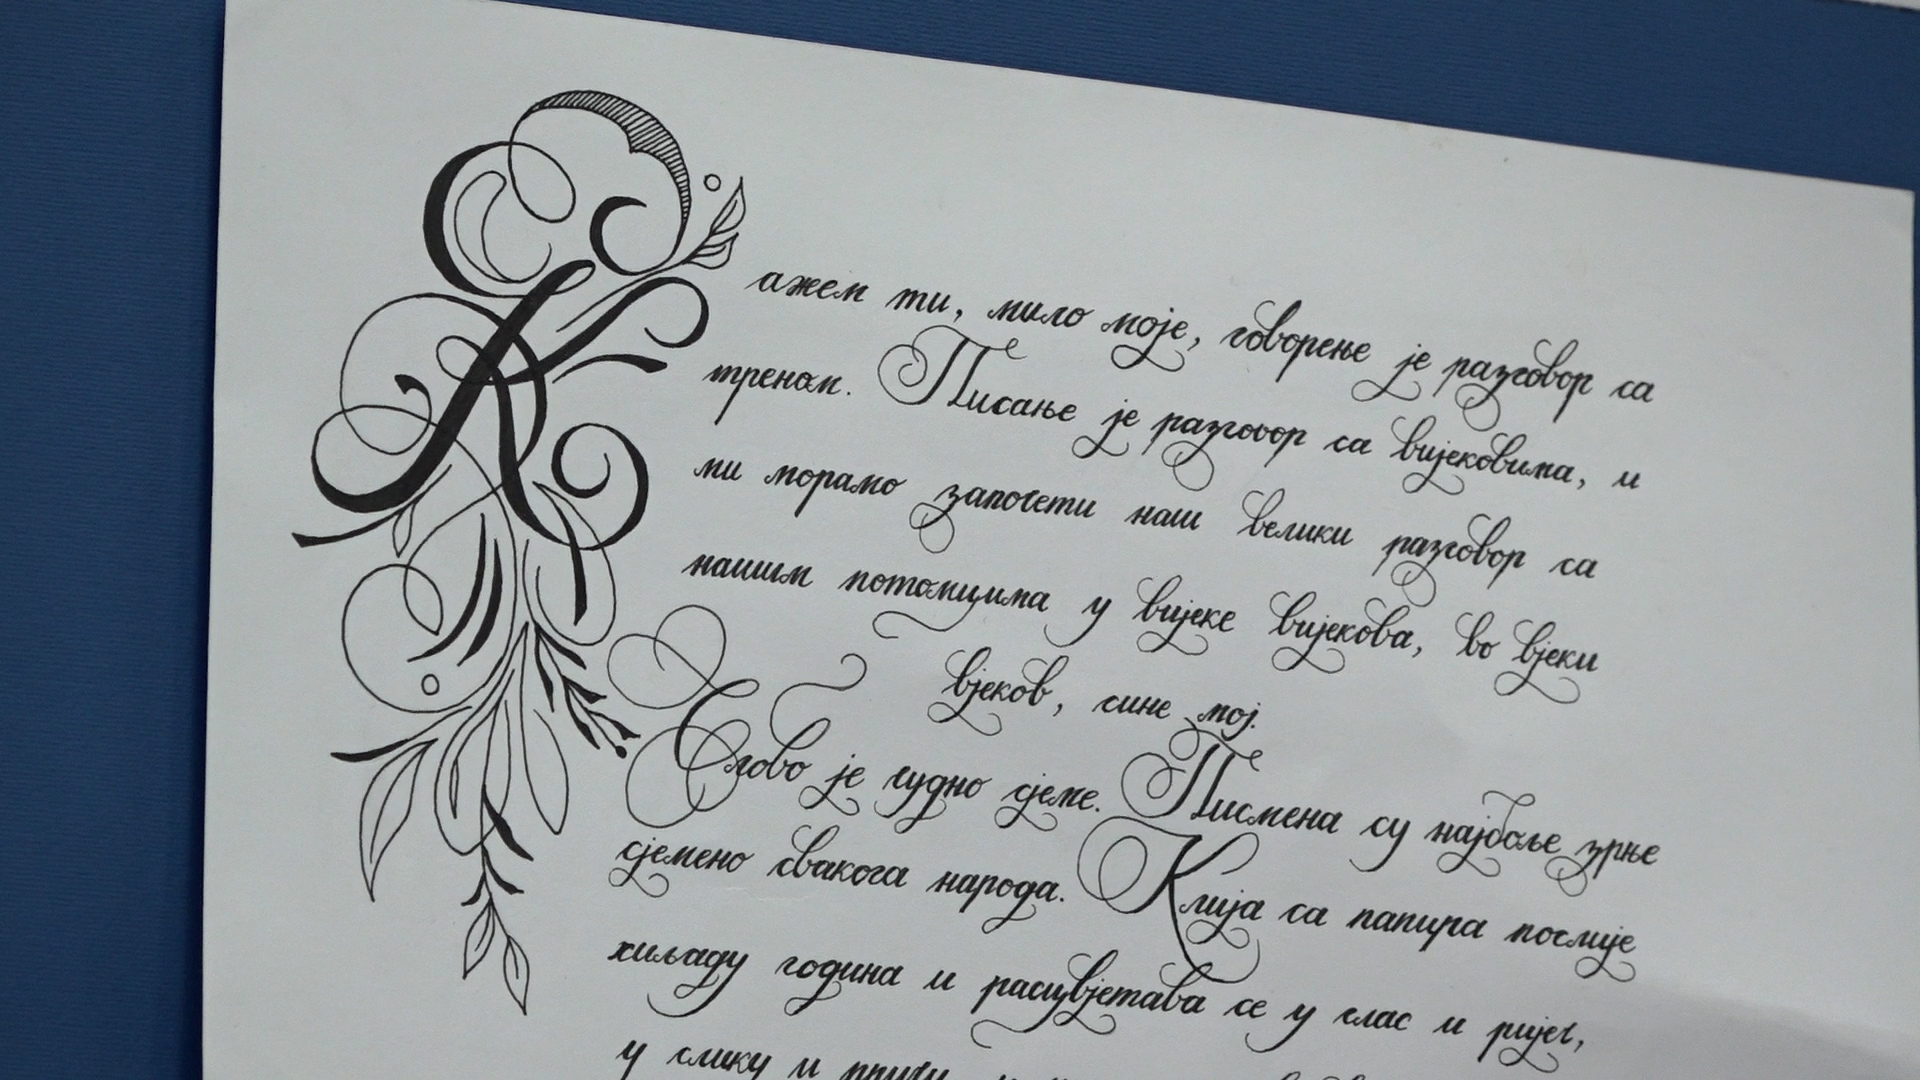 Кажем ти, мило моје, говорење је разговор са
треном. Писање је разговор са вијековима, и
ми морамо започети наш велики разговор са
нашим потомцима у вијеке вијекова, во вјеки
вјеков, сине мој.
Слово је чудно сјеме. Писмена су најбоље зрње
сјемено свакога народа. Клија са папира послије
хиљаду година и расцвјетава се у глас и ријеч,
у слику и причу,